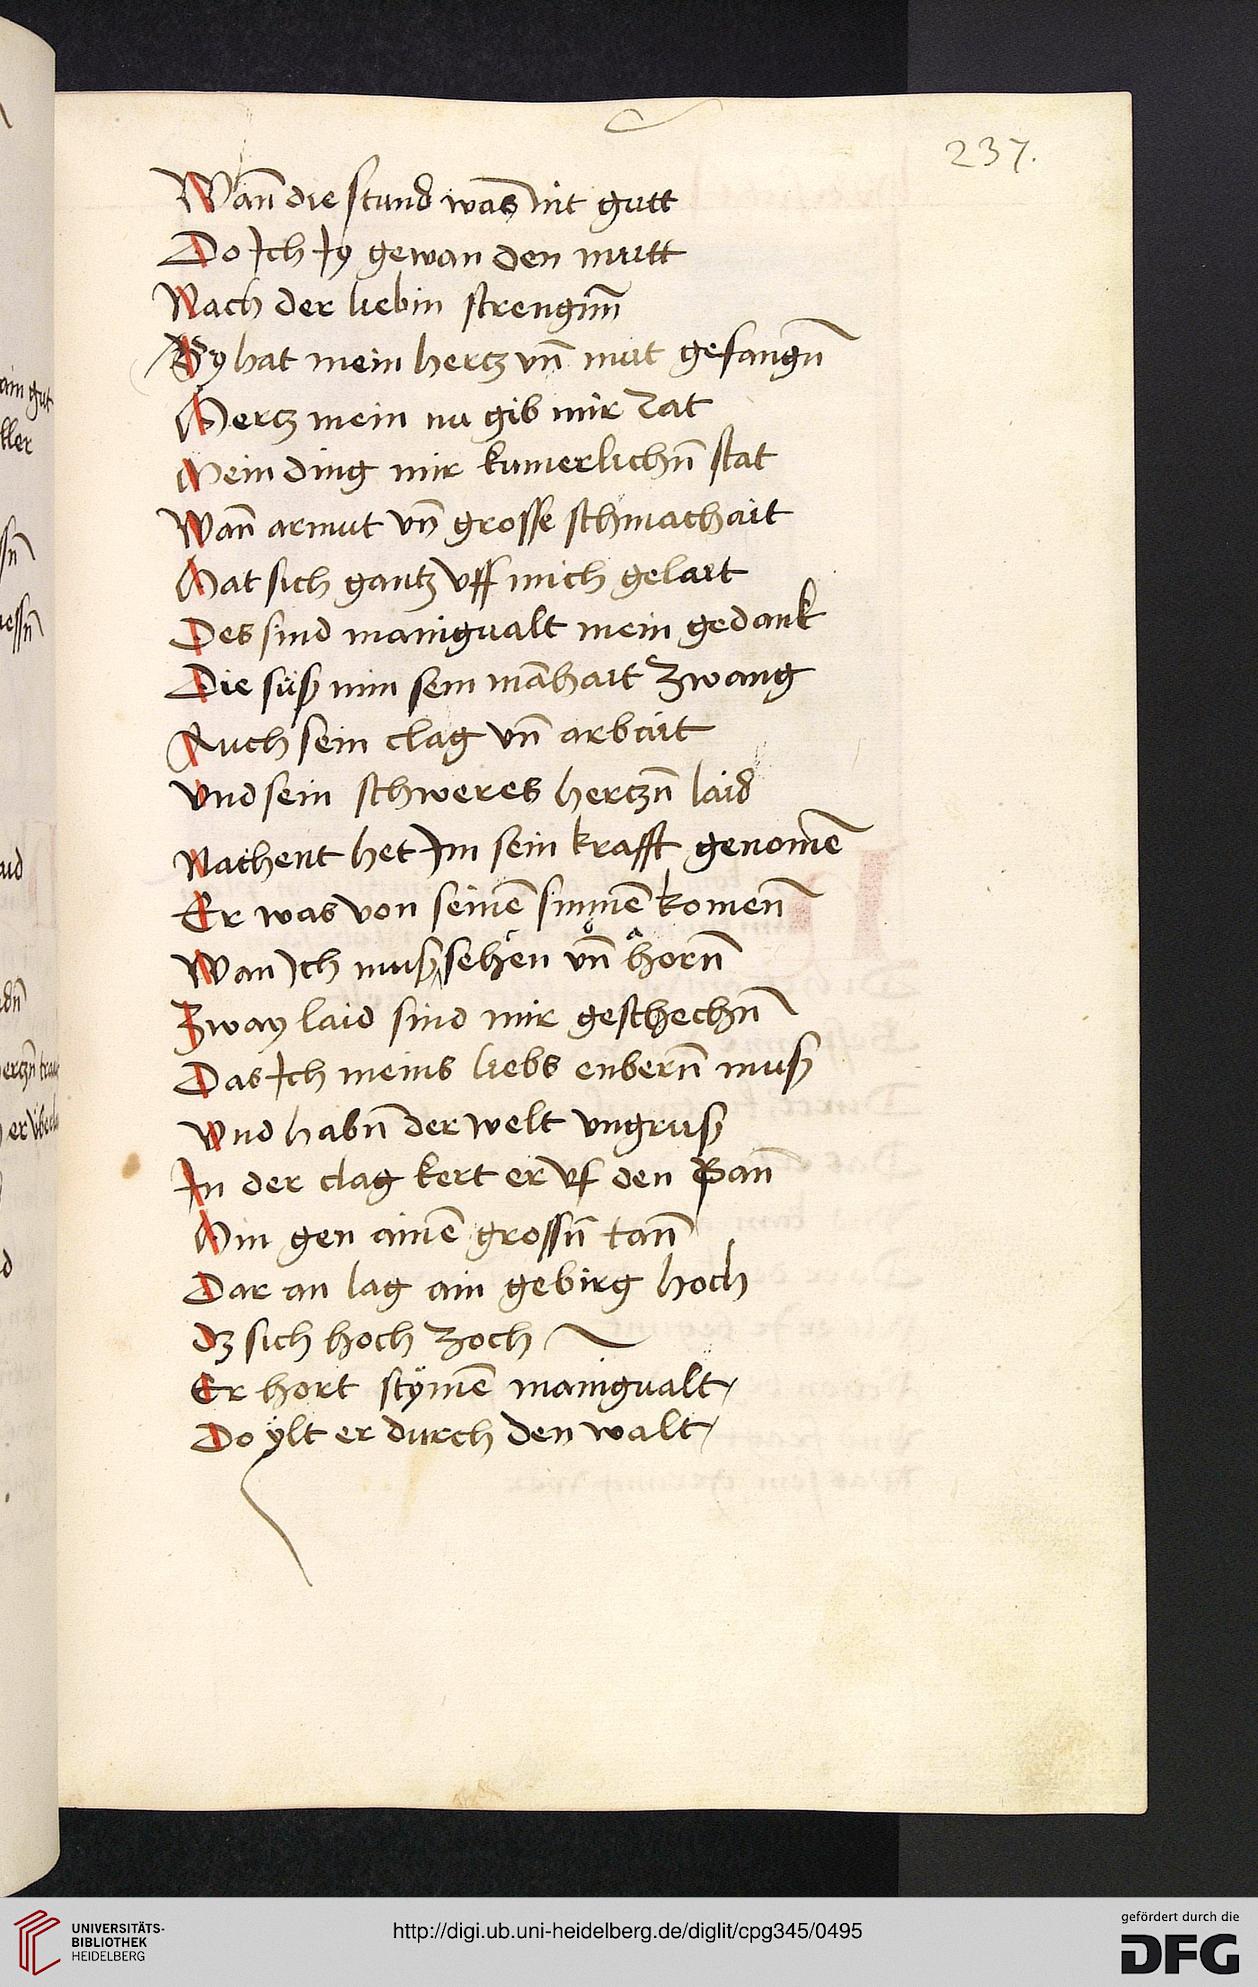 237.
Wañ die stund was nit gutt
Do Ich Iy gewan den mutt
Nach der liebin strengiñ
Sy hat mein hertz vñ mut gefangñ
Hertz mein nu gib mir Rat
Mein ding mir kumerlichñ stat
Wañ armut vñ grosse schmachait
Hat sich gantz vff mich gelait
Des sind manigualt mein gedank
Die süß min sein mãhait Zwang
Auch sein clag vñ arbait
Vnd sein schweres hertzñ laid
Nachent het Im sein krafft genomẽ
Er was von seinẽ sinnẽ komeñ
Wan Ich muß sehen vñ horñ
Zway laid sind mir geschechñ
Das Ich meins liebs enberñ muß
Vnd habñ der welt vngruß
In der clag kert er vf den Pañ
Hin gen ainẽ grossñ tañ
Dar an lag ain gebirg hoch
dz sich hoch Zoch
Er hort stÿmẽ manigualt
Do ÿlt er durch den walt
ain gut
ller
UNIVERSITÄTS-
BIBLIOTHEK
HEIDELBERG
http://digi.ub.uni-heidelberg.de/diglit/cpg345/0495
gefördert durch die
DFG